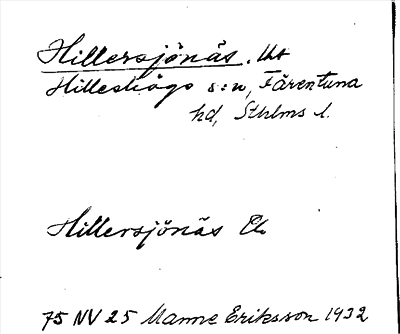 Hillersjönäs, lht
Hilleshögs s:n, Färentuna
hd, Sthlms l.
Hillersjönäs Ek
75 NV 25 Manne Eriksson 1932